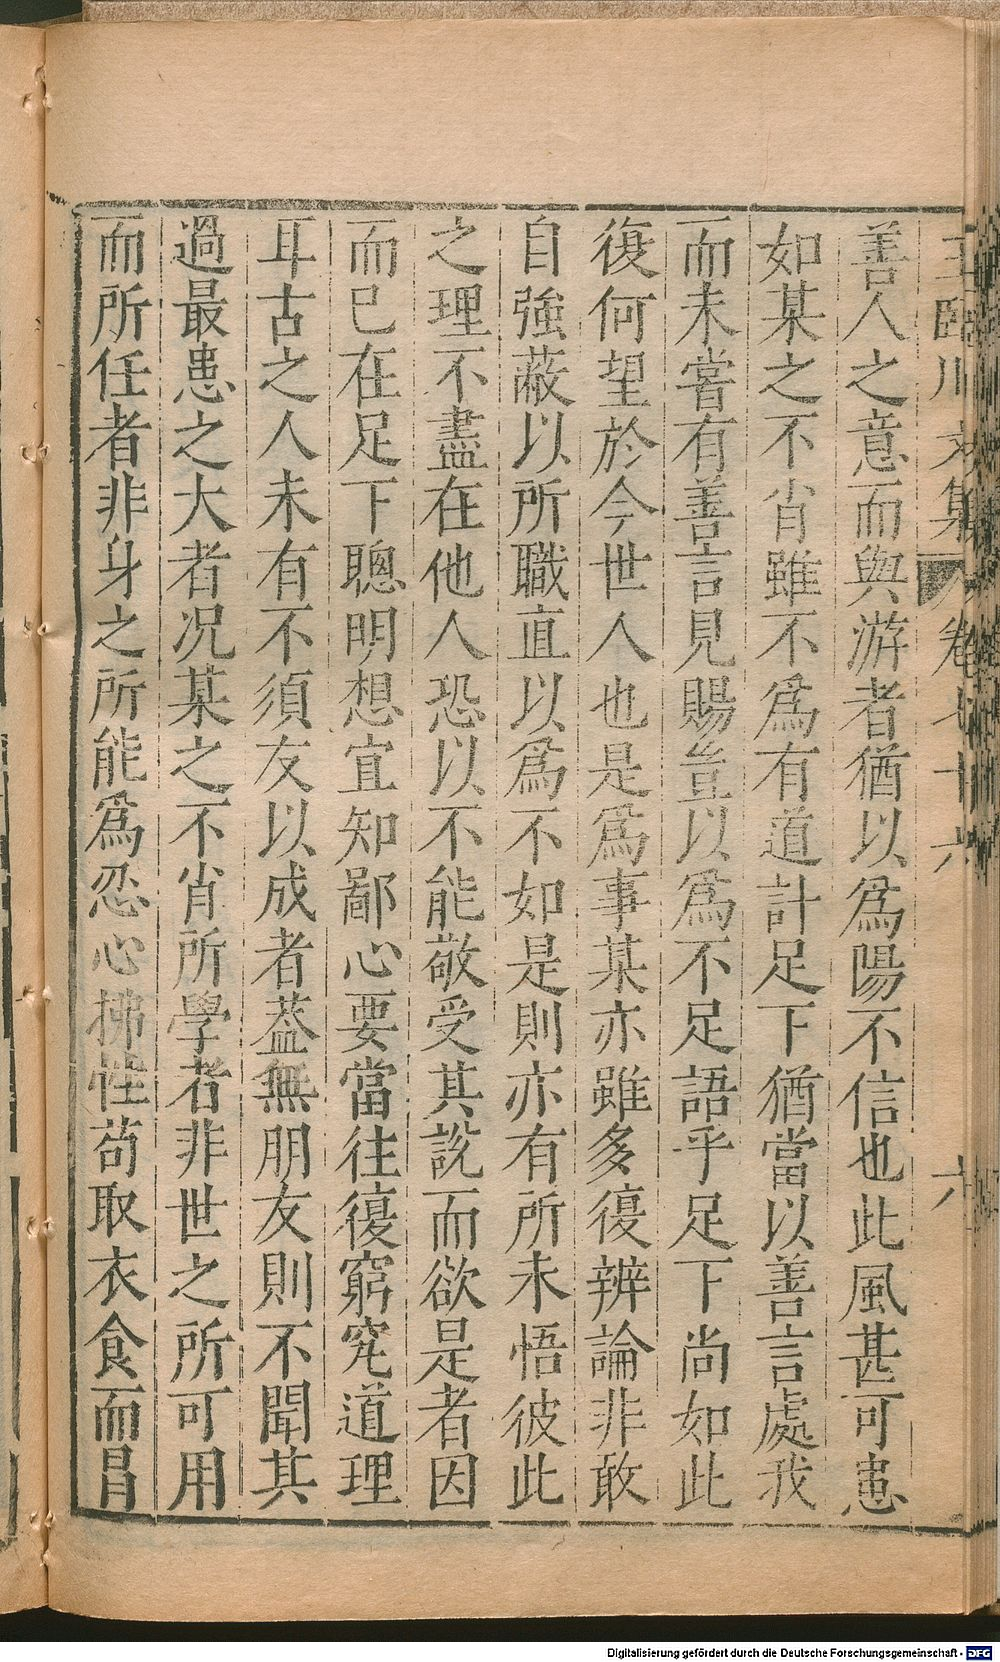 王臨川文集 卷七十六 六
善人之意而與游者猶以爲陽不信也此風甚可患
如某之不肖雖不爲有道計足下猶當以善言處我
而未嘗有善言見賜豈以爲不足語乎足下尚如此
復何望於今世人也是爲事某亦雖多復辨論非敢
自強蔽以所職直以爲不如是則亦有所未悟彼此
之理不盡在他人恐以不能敬受其說而欲是者因
而已在足下聰明想宜知鄙心要當往復窮究道理
耳古之人未有不須友以成者葢無朋友則不聞其
過最患之大者况某之不肖所學者非世之所可用
而所任者非身之所能爲忍心拂性苟取衣食而冒
Digitalisierung gefördert durch die Deutsche Forschungsgemeinschaft - DFG